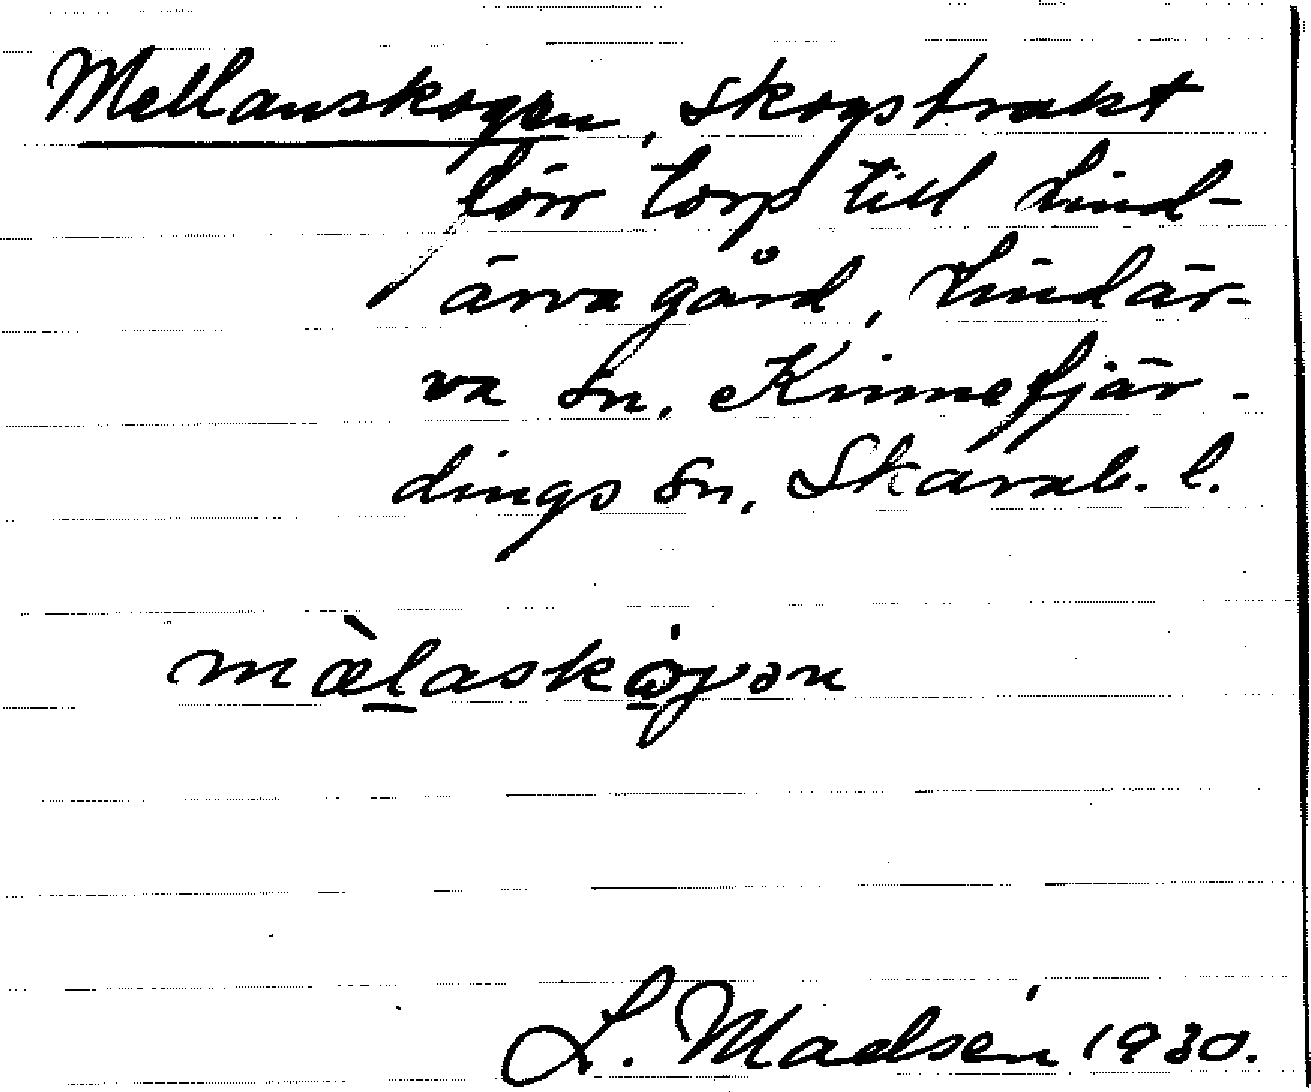 Mellanskogen, skogstrakt
förr torp till Lind-
ärva gård, Lindär-
va sn. Kinnefjär-
dings sn, Skarab. l.
mæ̀laskò̱γən
L. Maelsén 1930.